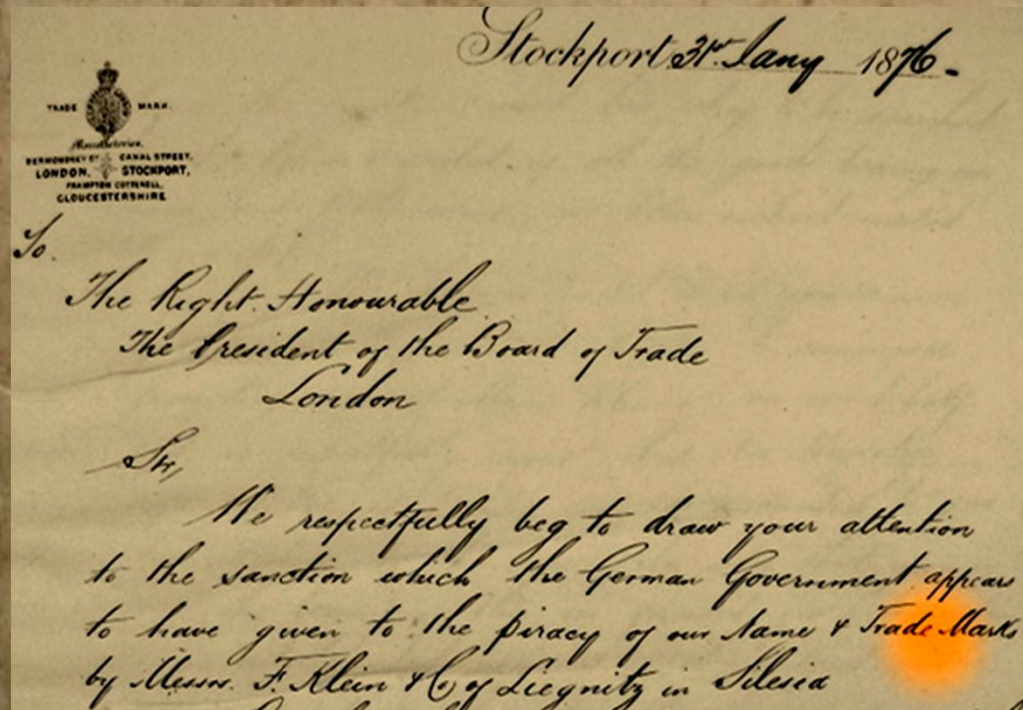 Stockport 31st Jany 1876.
TRADE MARK.
Manufactories.
BERMONDSEY ST CANAL STREET,
LONDON, STOCKPORT,
FRAMPTON COTTERELL,
GLOUCESTERSHIRE
To
The Right Honourable
The President of the Board of Trade
London
Sir,
We respectfully beg to draw your attention
to the sanction which the German Government appears
to have given to the piracy of our Name & Trade Marks
by Messrs. F. Klein & Co of Liegnitz in Silesia